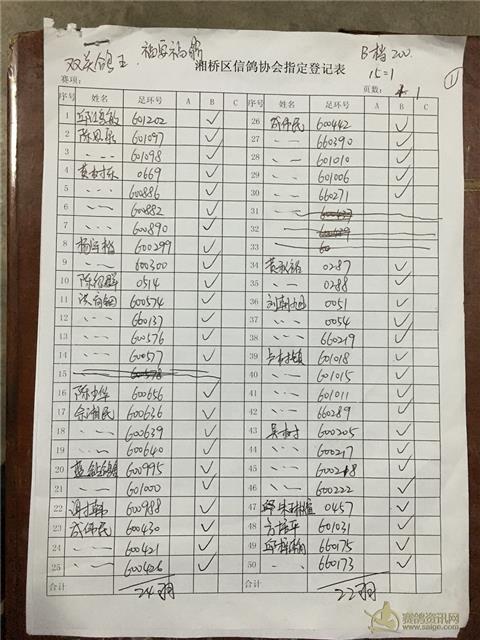 双关鸽王 福安福鼎 B档200
15=1
湘桥区信鸽协会指定登记表
赛项: 页数: 1
①
序号 姓名 足环号 A B C 序号 姓名 足环号 A B C
1 601202 ✓ 26 成伟民 600442 ✓
2 601097 ✓ 27 〃 660390 ✓
3 〃 601098 ✓ 28 〃 601010 ✓
4 黄树东 0669 ✓ 29 〃 601006 ✓
5 〃 600886 ✓ 30 〃 660271 ✓
6 〃 600882 ✓ 31 〃 600437
7 〃 600890 ✓ 32
8 600299 ✓ 33 60
9 〃 600300 ✓ 34 0287 ✓
10 0514 ✓ 35 〃 0288 ✓
11 600574 ✓ 36 0051 ✓
12 〃 660137 ✓ 37 〃 0054 ✓
13 〃 600576 ✓ 38 〃 660219 ✓
14 〃 600577 ✓ 39 601018 ✓
15 600578 40 〃 601015 ✓
16 600656 ✓ 41 〃 601011 ✓
17 600636 ✓ 42 〃 660289 ✓
18 〃 600639 ✓ 43 600205 ✓
19 〃 600640 ✓ 44 〃 600217 ✓
20 600995 ✓ 45 〃 600218 ✓
21 〃 601000 ✓ 46 〃 600222 ✓
22 600988 ✓ 47 0457 ✓
23 成伟民 600430 ✓ 48 601031 ✓
24 〃 600421 ✓ 49 660175 ✓
25 〃 600426 ✓ 50 〃 660173 ✓
合计 24羽 合计 22羽
赛鸽资讯网
www.saige.com